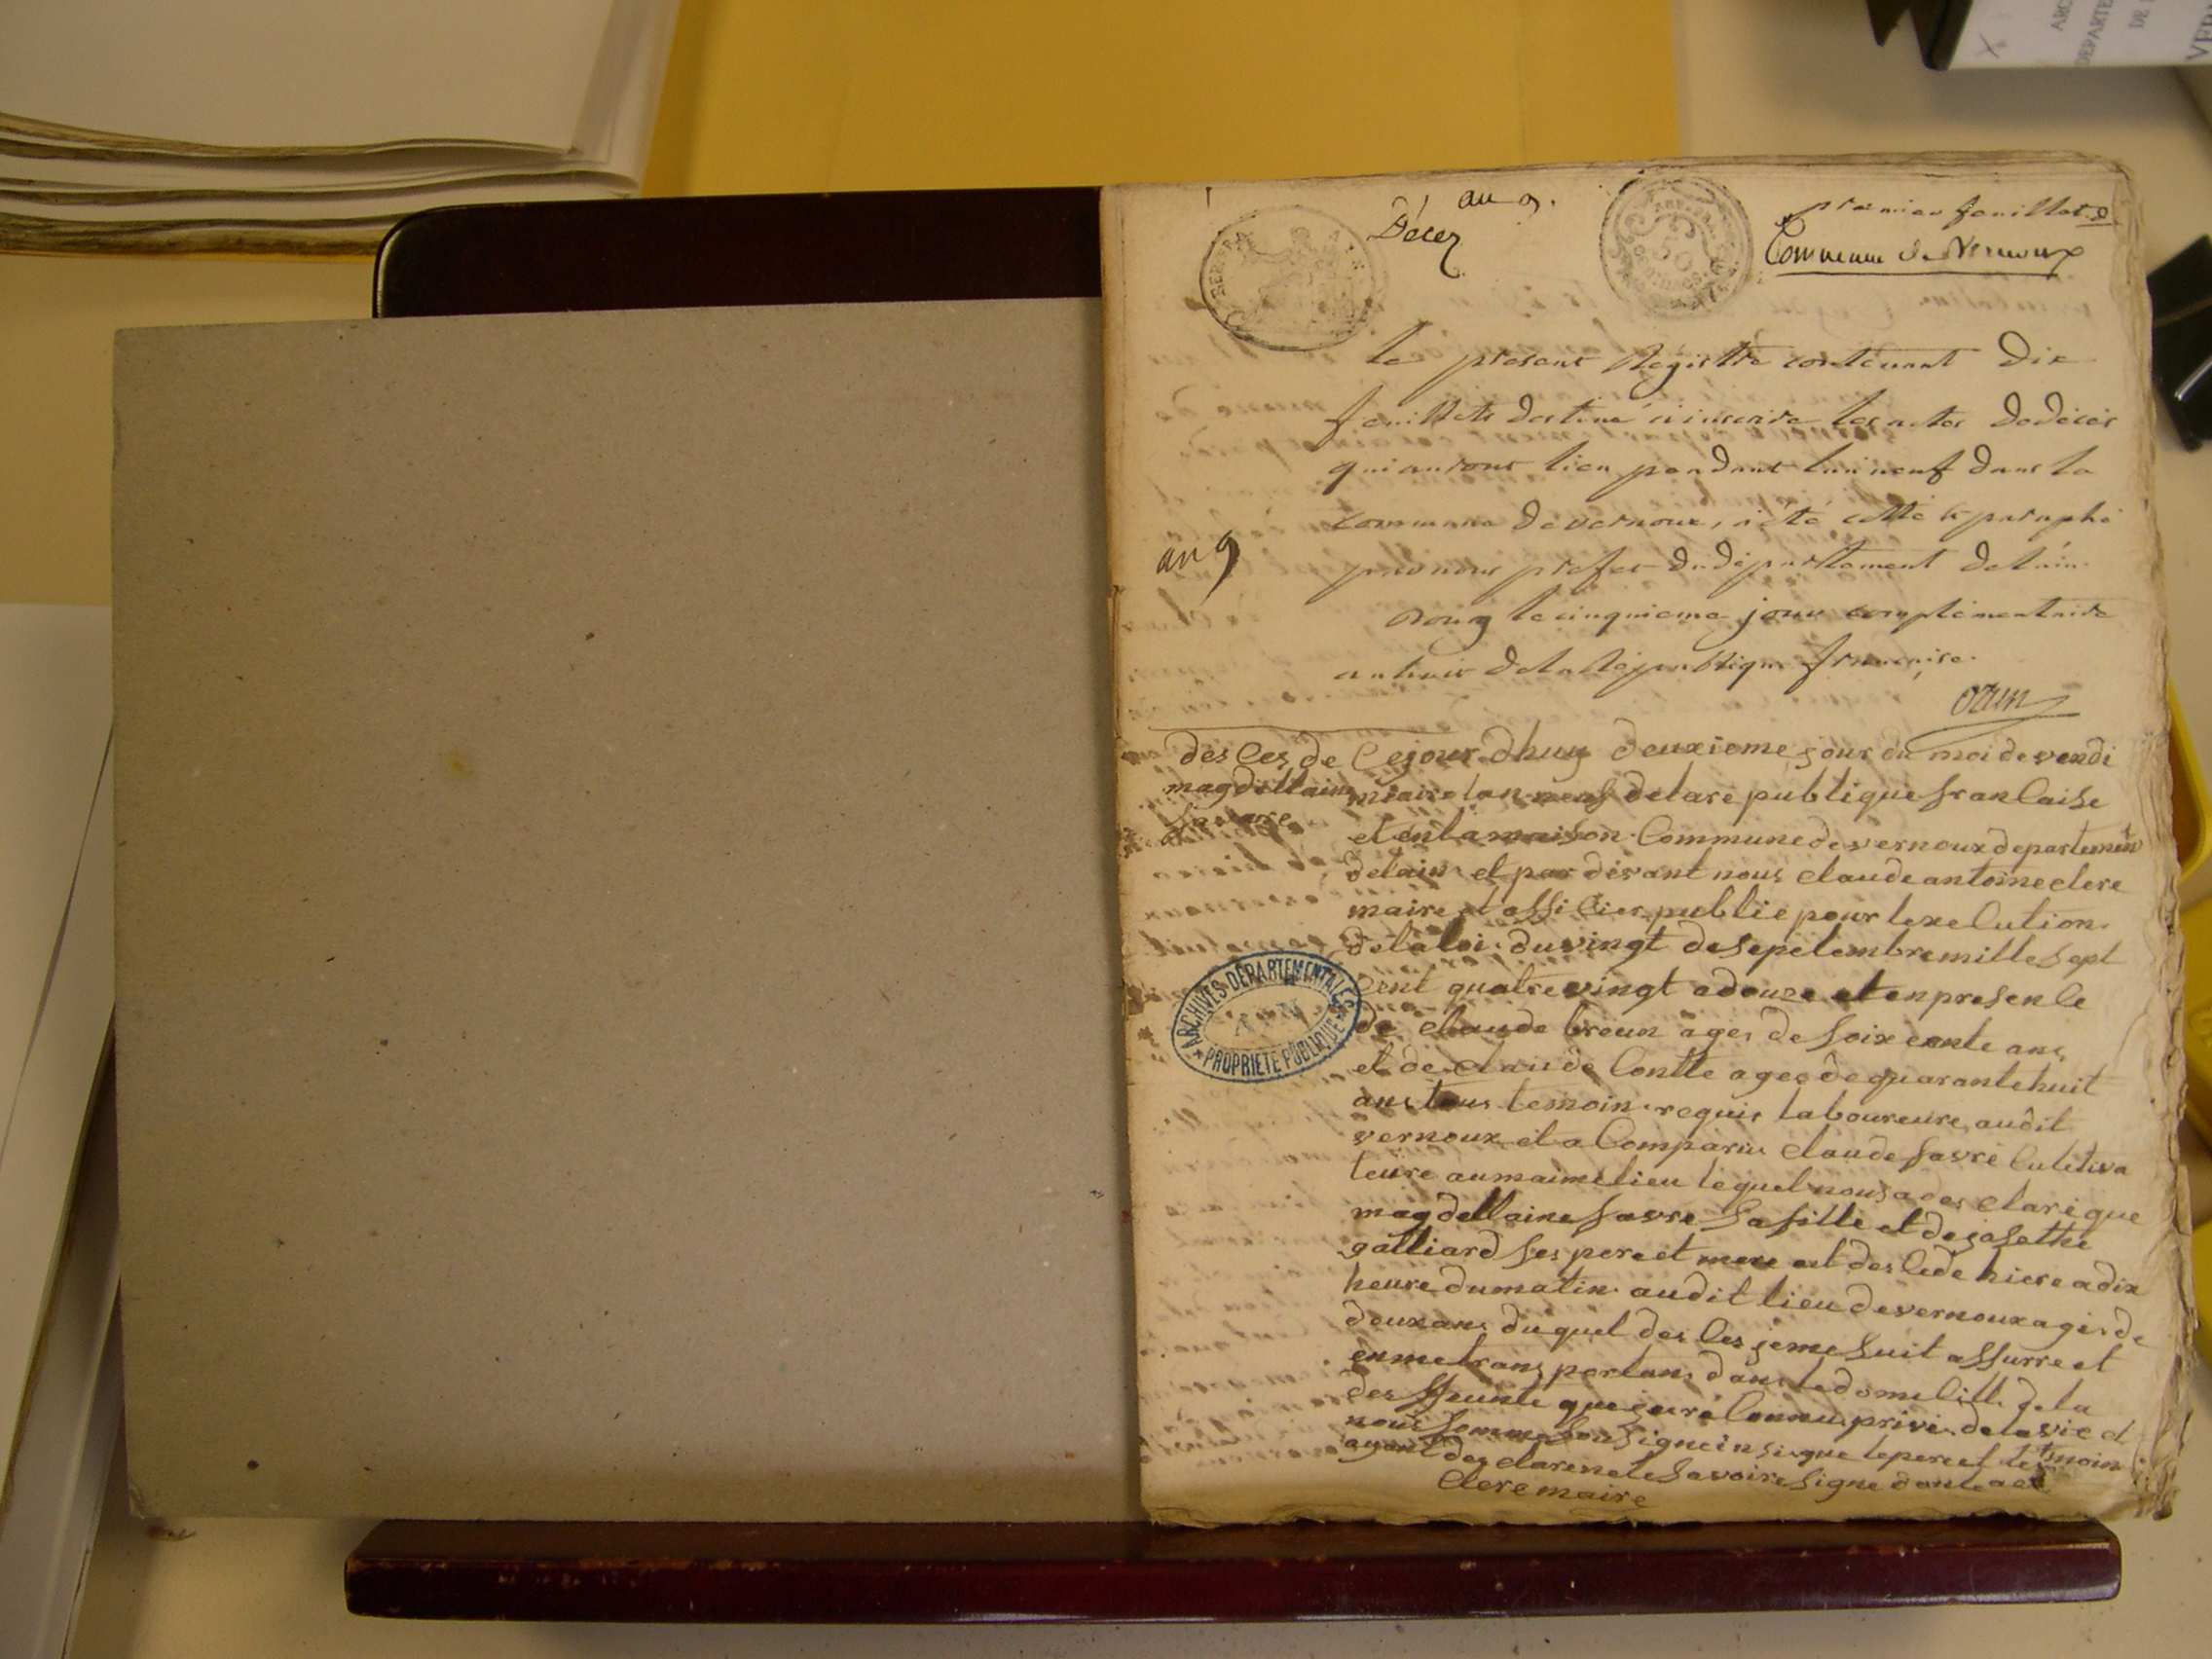 an 9.
Décez
premier feuillet
Commune de Vernoux
50
Le present Registre contenant Dix
feuillets destiné à inscrire les actes de décès
qui auront lieu pendant l'an neuf dans la
commune de vernoux, a été cotté & paraphé
par nous prefet du département de l'ain.
Bourg le cinquieme jour complémentaire
an huit de la République française.
an 9
des Ces de
magdellaine
favre
Cejour dhuy deuxieme jour du moi de vendi
miaire lan neuf delare publique franCaise
et enlamaison Commune de vernoux departement
delain et par devant nous claude antoine clere
maire et offi Cier publie pour lexeCution
delaloi du vingt desepetembre mille sept
Cent quatrevingt adouze et enpresenCe
de claude breun ages de soixcente ans
et de claude Contte ages de quarantehuit
ans tous temoin requis laboureure audit
vernoux et a Comparus claude favre Culetiva
teure aumaimelieu lequel nous a des clare que
magdellaine favre safille et dejosethe
galliard ses pere et mere est des Cede hiere adix
heure dumatin audit lieu devernoux ages de
deux ans duquel des Ces jeme suit assurre et
enmetrans portans dans ledomeCille dela
des ffeunte que jere Connu prives delavie et
nous somme sousignein si que lepere et tetmoin
ayant des clarenele savoire signe donteact
Clere maire
ARCHIVES DÉPARTEMENTALES
AIN
PROPRIÉTÉ PUBLIQUE
ARC
DEPARTE
DE
VER